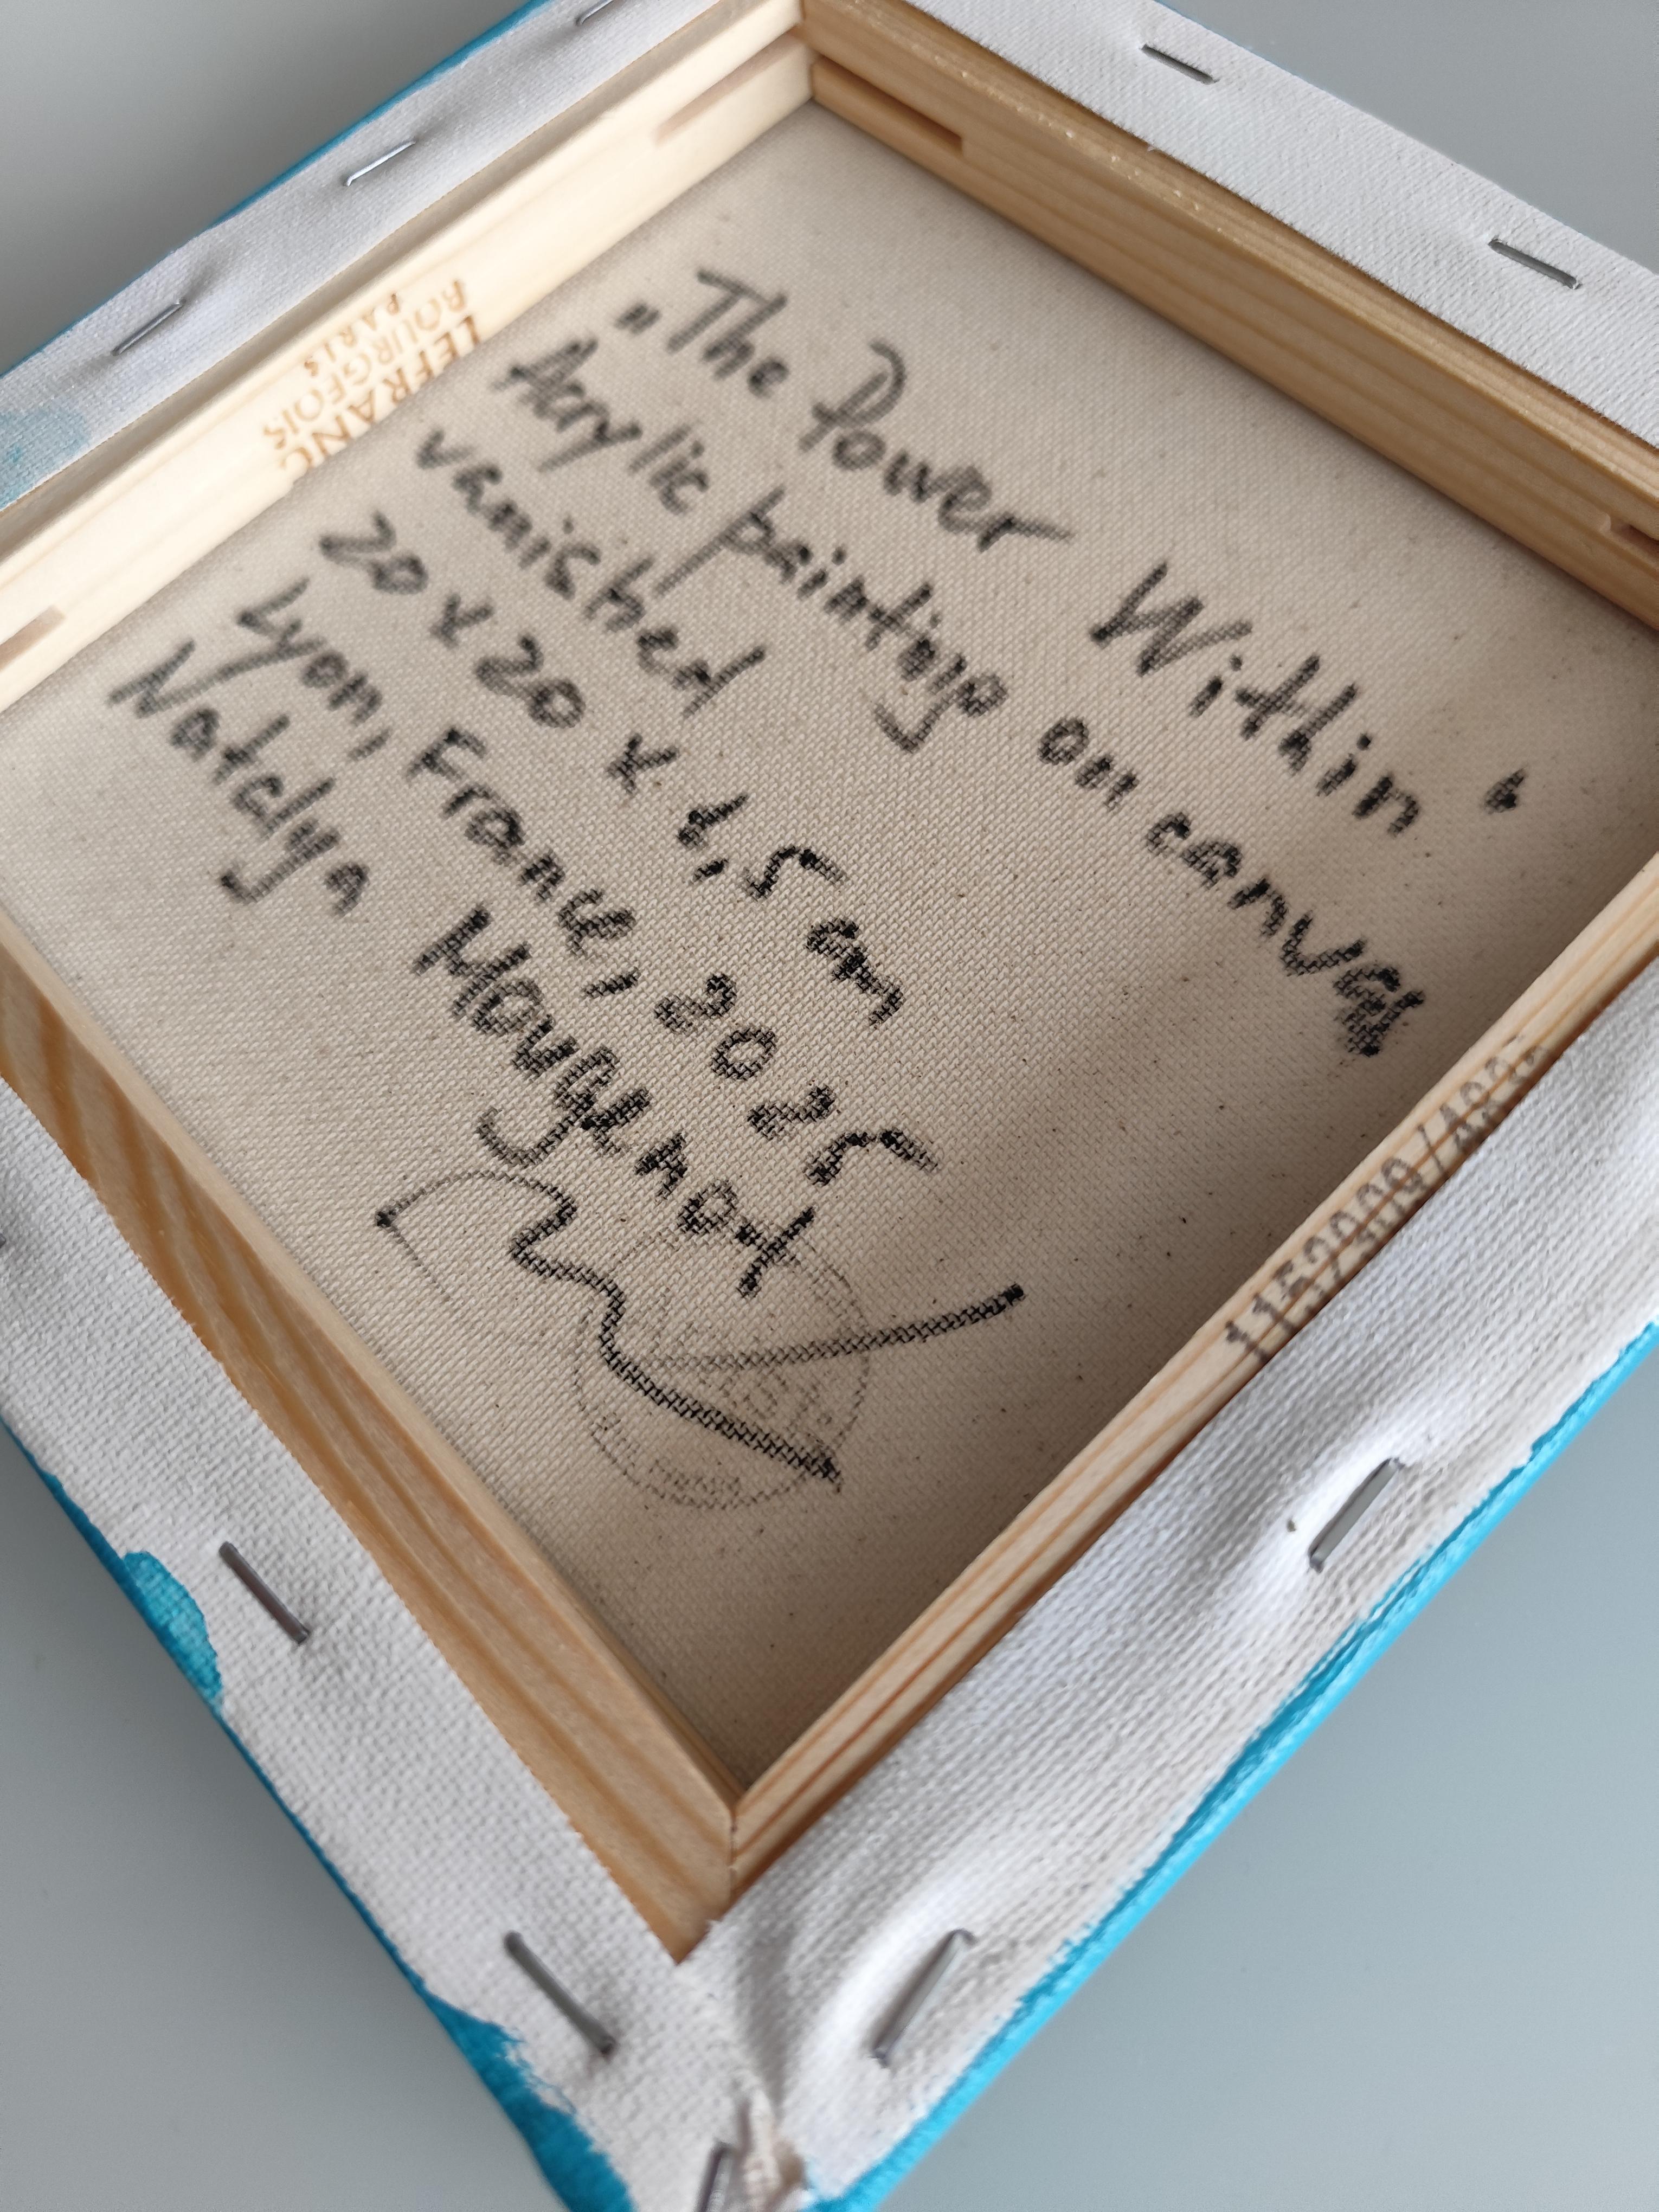 "The Power Within"
Acrylic painting on canvas
vanished
20 x 20 x 1,5 cm
Lyon, France, 2025
Natalya Hougenot
LEFRANC
BOURGEOIS
PARIS
1152909/A